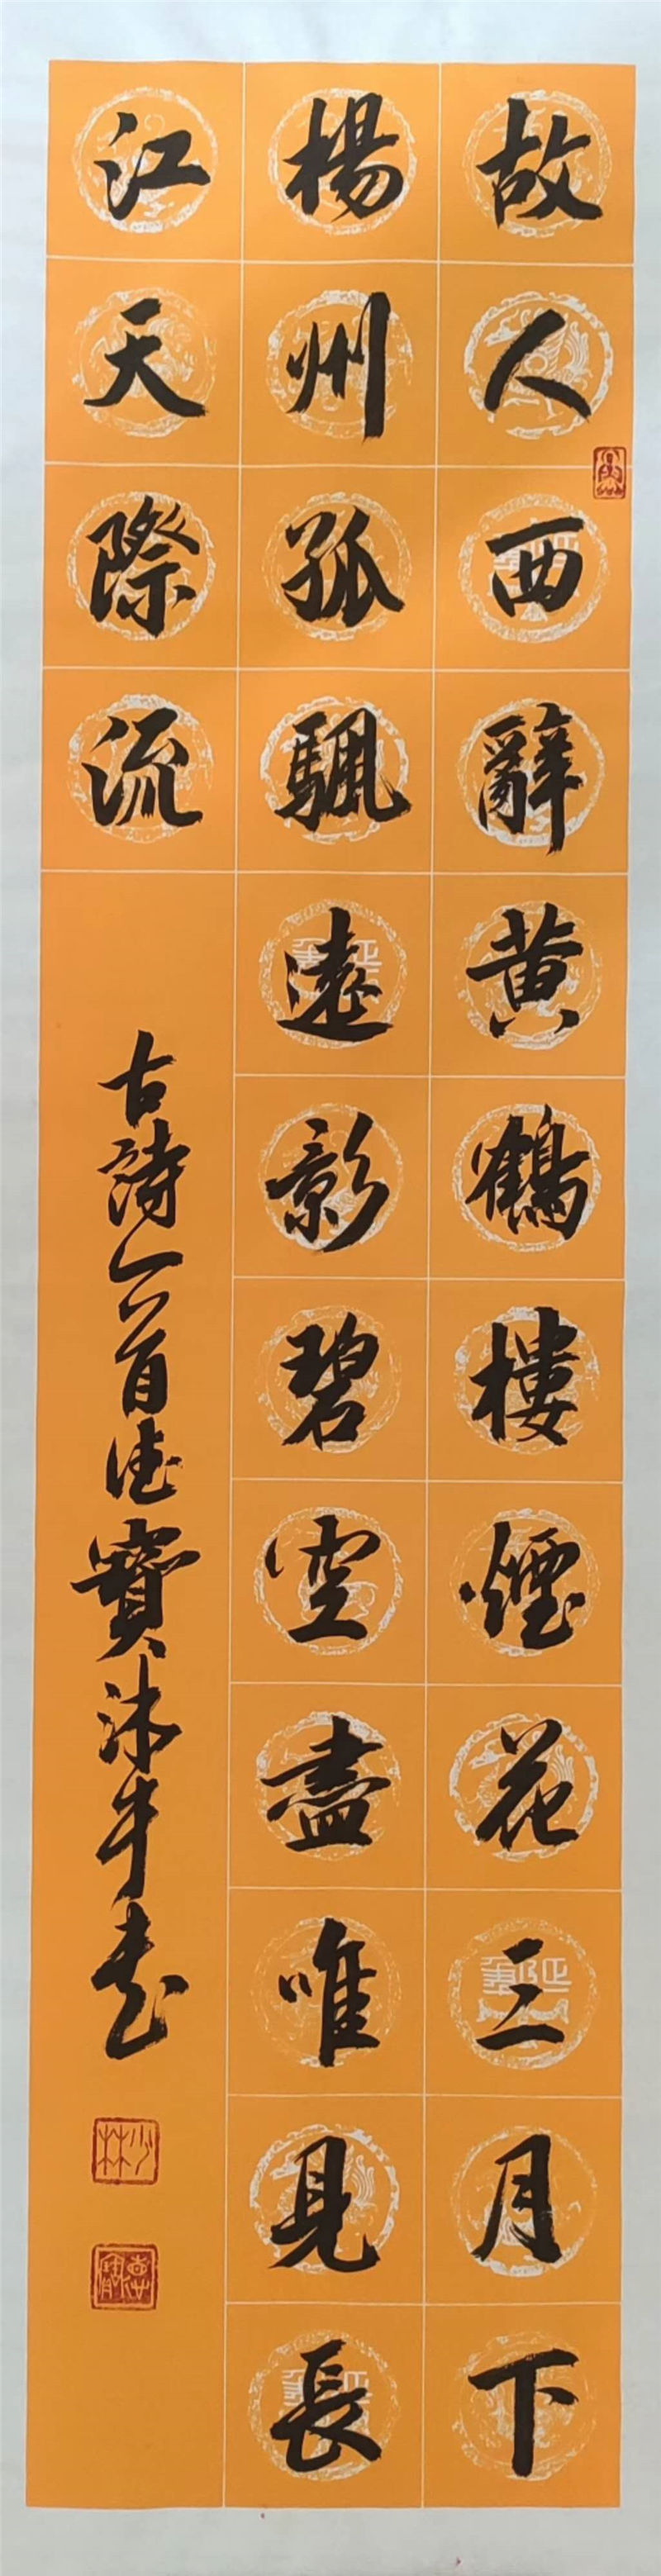 故人西辭黄鶴樓煙花三月下
楊州孤颿遠影碧空盡唯見長
江天際流
古詩一首德寶沐手書
少林
德寶